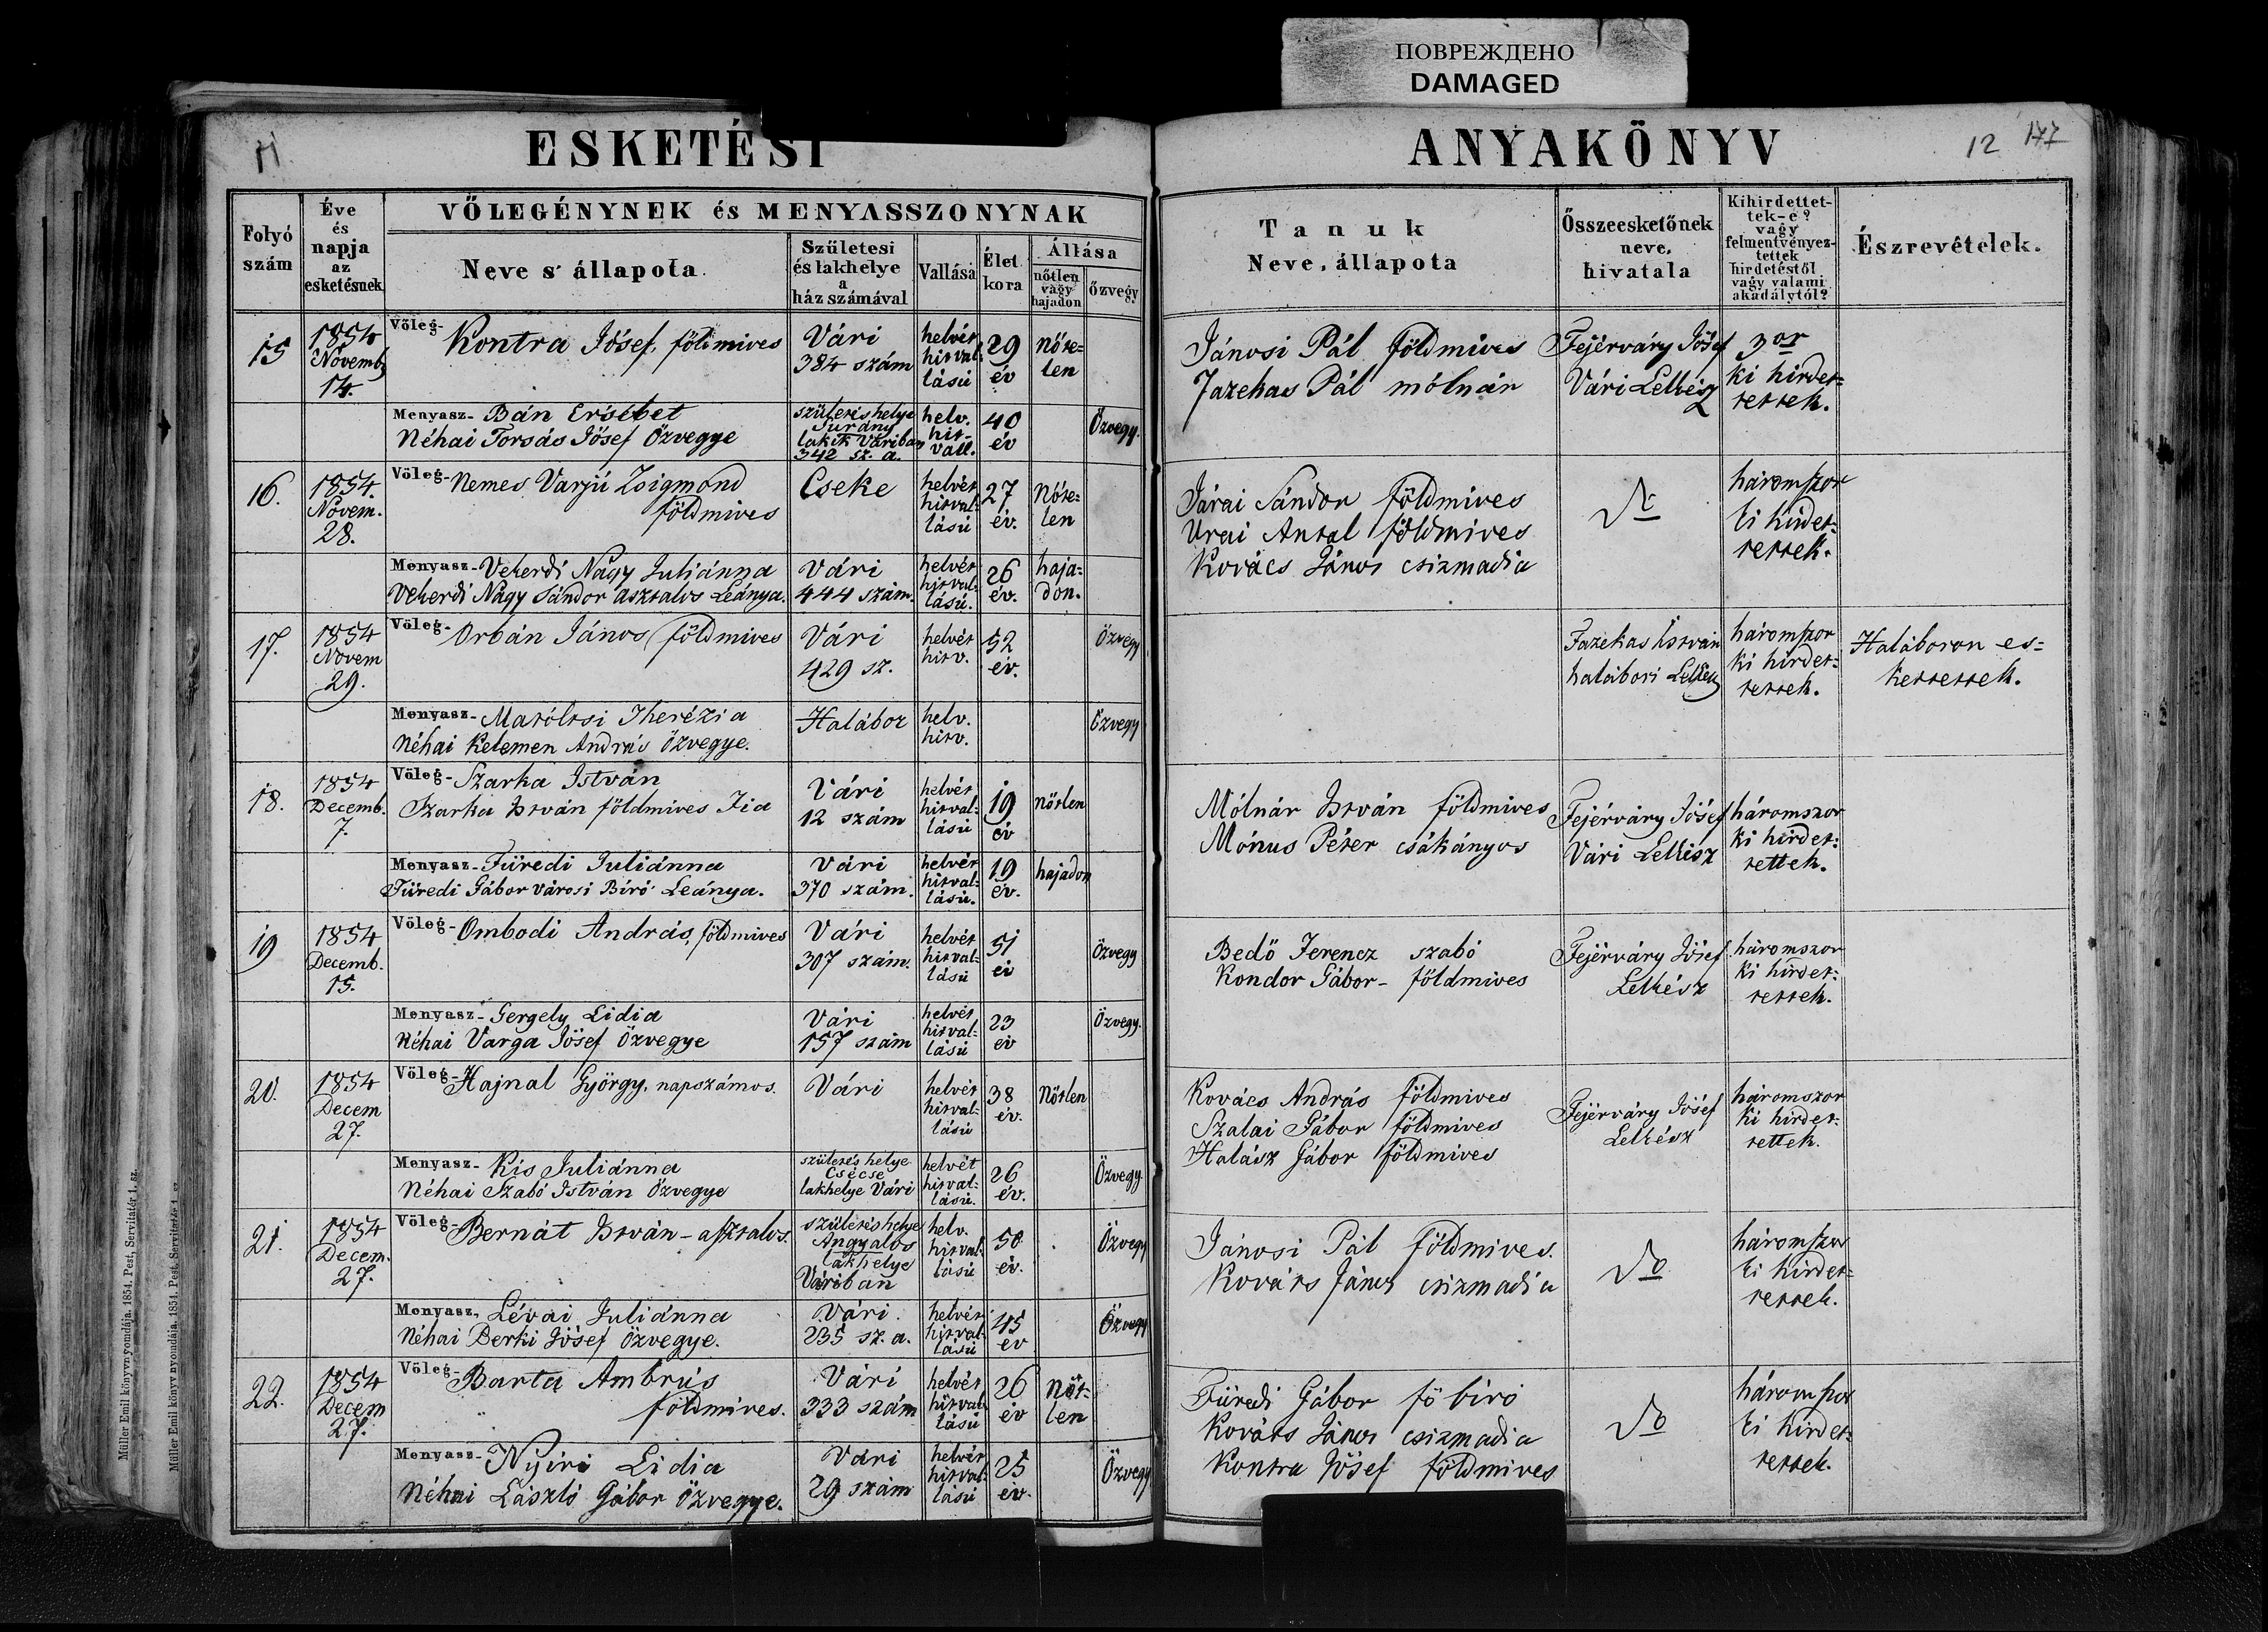 ПОВРЕЖДЕНО
DAMAGED
11
ESKETÉSI
ANYAKÖNYV
12 147
Folyó szám
Éve és napja az esketésnek
VŐLEGÉNYNEK és MENYASSZONYNAK
Neve s állapota
Születesi és lakhelye a ház számával
Vallása
Élet kora
Állása
nőtlen vagy hajadon
özvegy
Tanuk
Neve, állapota
Összeesketőnek neve, hivatala
Kihirdettettek-e? vagy felmentvényeztettek hirdetéstől vagy valami akadálytól?
Észrevételek.
15 1854 Novemb. 14.
Vőleg- Kontra Jósef, földmives
Vári 384 szám
helvét hitvallású
29 év
nőte=len
Jánosi Pál földmives
Fazekas Pál mólnár
Fejérváry Jósef Vári Lelkész
3or ki hirdet=tettek.
Menyasz- Bán Ersébet
Néhai Torsás Jósef Özvegye
születés helye
lakik Váriban
342 sz. a.
helv. hit-vall.
40 év
Özvegy.
16. 1854. Novem. 28.
Vőleg- Nemes Varjú Zsigmond
földmives
Cseke
helvét hitval=lású
27 év.
Nőte=len
Járai Sándor földmives
Urai Antal földmives
Kovács János csizmadia
háromszor ki hirdet=tettek.
Menyasz- Vekerdi Nagy Juliánna
Vekerdi Nagy Sándor Asztalos Leánya.
Vári 444 szám.
helvét hitval=lású.
26 év.
haja=don.
17. 1854 Novem 29.
Vőleg- Orbán János földmives
Vári 429 sz.
helvét hitv.
52 év.
Özvegy
Fazekas István halábori Lelkész
háromszor ki hirdet=tettek.
Haláboron es=
kettettek.
Menyasz- Matóltsi Therézia
Néhai Kelemen András özvegye.
Halábor
helv. hitv.
Özvegy
18. 1854 Decemb. 7.
Vőleg- Szarka István
Szarka István földmives Fia
Vári 12 szám
helvét hitval=lású
19 év
nőtlen
Mólnár István földmives
Mónus Péter csákányos
Fejérváry Jósef Vári Lelkész
háromszor ki hirdet=tettek.
Menyasz- Füredi Juliánna
Füredi Gábor városi Biró Leánya.
Vári 370 szám.
helvét hitval=lású.
19 év.
hajadon
19 1854 Decemb. 15.
Vőleg- Ombodi András, földmives
Vári 307 szám.
helvét hitval=lású
51 év
Özvegy
Bedő Ferencz szabó
Kondor Gábor- földmives
Fejérváry Jósef Lelkész
háromszor ki hirdet=tettek.
Menyasz- Gergely Lidia
Néhai Varga Jósef özvegye
Vári 157 szám
helvét hitval=lású
23 év
Özvegy.
20. 1854 Decem 27.
Vőleg- Hajnal György, napszámos.
Vári
helvét hitval=lású
38 év.
Nőtlen
Kovács András földmives
Szalai Gábor földmives
Halász Gábor földmives
Fejérváry Jósef Lelkész
háromszor ki hirdet=tettek.
Menyasz- Kis Juliánna
Néhai Szabó István Özvegye
születés helye Csécse
lakhelye Vári
helvét hitval=lású.
26 év.
Özvegy.
21. 1854 Decem. 27.
Vőleg- Bernát István-asztalos.
születés helye Angyalos
lakhelye Váriban
helv. hitval=lású
50 év.
Özvegy
Jánosi Pál földmives.
Kováts János csizmadia
do
háromszor ki hirdet=tettek.
Menyasz. Lévai Juliánna
Néhai Derki Jósef Özvegye.
Vári 235 sz. a.
helvét hitval=lású
45 év
Özvegy
22. 1854 Decem 27.
Vőleg- Barta Ambrús
földmives.
Vári 333 szám
helvét hitval=lású
26 év
nőt=len
Füredi Gábor fö biró
Kováts János csizmadia
Kontra Jósef földmives
do
háromszor ki hirdet=tettek.
Menyasz- Nyiri Lidia
Néhai László Gábor özvegye.
Vári 29 szám
helvét hitval=lású
25 év.
Özvegy
Müller Emil könyvnyomdája. 1854. Pest, Servitatér 1. sz.
Müller Emil könyvnyomdája. 1854. Pest, Servitatér 1. sz.